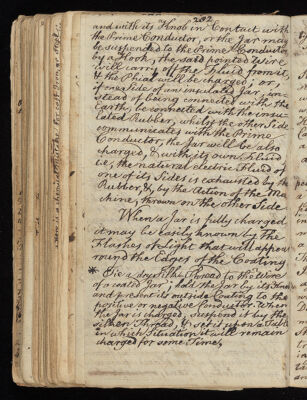 202
and with its Knob in Contact with
the Prime Conductor, or the Jar may
be suspended to the Prime Conductor
by a Hook, the said pointed Wire
will carry off the Fluid from it,
& the Phial will be charged; or,
if one Side of an insulated Jar, in-
stead of being connected with the
Earth, be connected with the insu-
lated Rubber, whilst the other Side
communicates with the Prime
Conductor, the Jar will be also
charged, & with its own Fluid
i.e., the natural electric Fluid of
one of its Sides is exhausted by the
Rubber, &, by the Action of the Ma-
chine, thrown on the other Side.
When a Jar is fully charged
it may be easily known by the
Flashes of Light that will appear
round the Edges of the Coating.
* Tie a dry Silk Thread to the Wire
of a coated Jar; hold the Jar by its Knob
and present its outside Coating to the
positive or negative Conductor. When
the Jar is charged, suspend it by the
silken Thread, & set it upon a Table
in which Situation it will remain
charged for some Time,